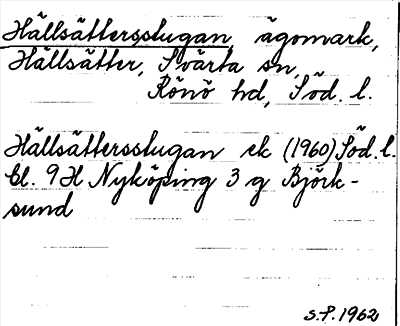 Hällsättersstugan, ägomark,
Hällsätter, Svärta sn,
Rönö hd, Söd. l.
Hällsättersstugan ek (1960) Söd. l.
bl. 9H Nyköping 3 g Björk-
sund
S.P. 1962